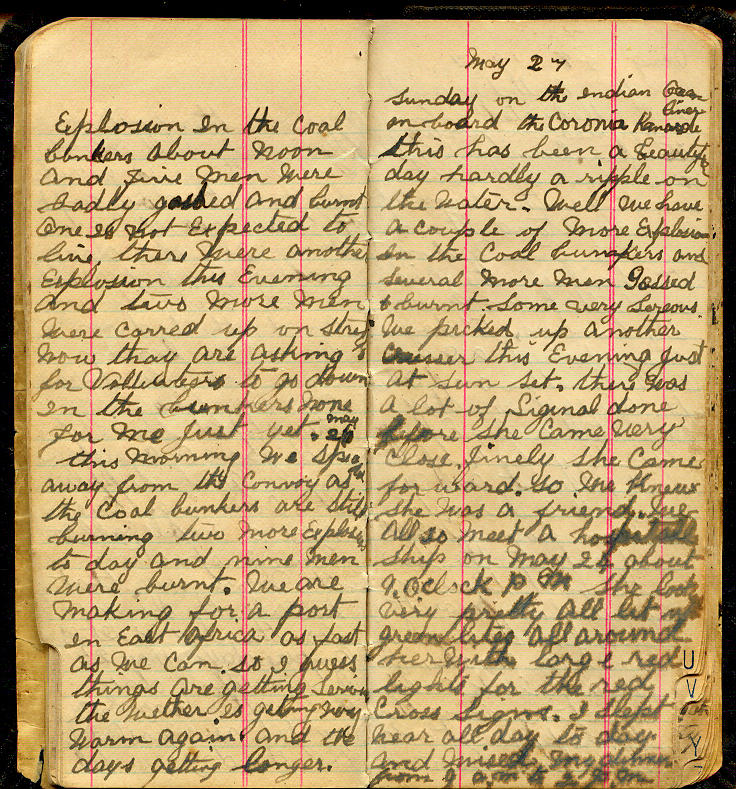 Explosion In the Coal
bunkers about Noon
And Five Men Were
badly gassed and burnt
One is Not Expected to
live, there Were another
Explosion this Evening
And two More Men
Were carred up on
Now thay are asking
for Vollenters to go down
In the bunkers None
for Me Just yet.
May 26
this Morning We
away from the Convoy as
the Coal bunkers are Still
burning two More
to day and nine Men
Were burnt. We are
Making for a port
in East Africa as fast
as We Can. so I guess
things are getting
the Wether is geting very
Warm again. And the
days getting longer.
May 27
Sunday on the Indian
on board the Coronia
this has been a
day hardly a ripple on
the Water. Well We have
a couple of More Explosion
In the Coal bunkers and
Several More Men Gassed
& burnt Some very Sereous
We picked up another
Crusier this Evening Just
At Sun Set. there Was
A lot of Siginal done
before She Came Very
Close. finely She Came
for ward. so We Knew
She was a friend. We
All so Meet A
Ship on May 26 about
Oclock P M She look
Very pretty All lit
green lites All around
her With large red
lights for the red
Cross Signs. I Slept
Near all day to day
And Missed My dinner
from 9 a.m to 2 P.M
U
V
Y